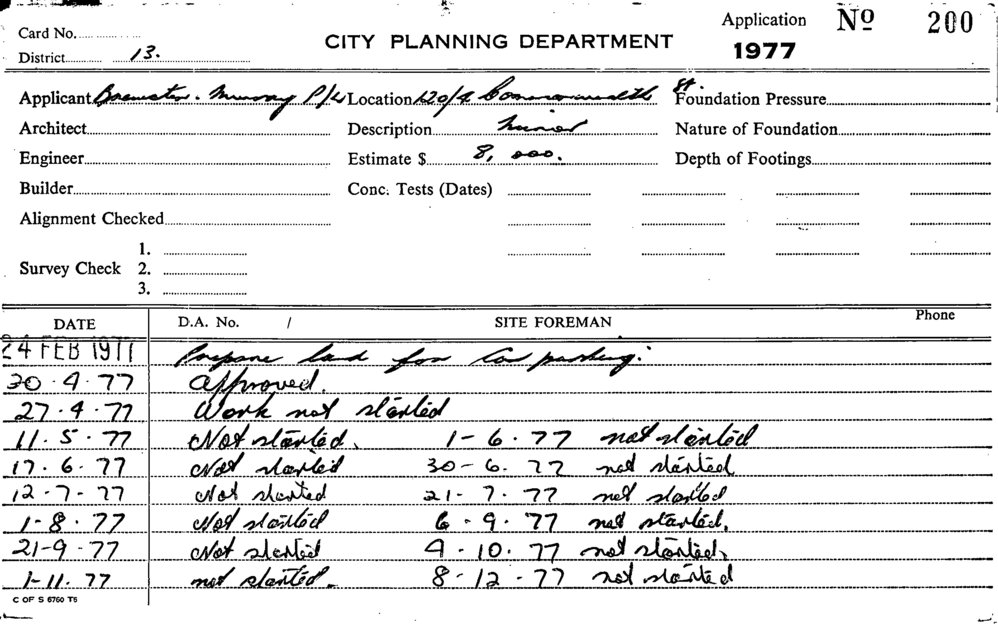 Card No. Application No 200
District 13. CITY PLANNING DEPARTMENT 1977
Applicant Brewster. Murray P/L Location 120/4 Commonwealth St. Foundation Pressure
Architect Description minor Nature of Foundation
Engineer Estimate $ 8,000. Depth of Footings
Builder Conc. Tests (Dates)
Alignment Checked
1.
Survey Check 2.
3.
DATE D.A. No. / SITE FOREMAN Phone
24 FEB 1977 Prepare land for Car parking.
30.4.77 Approved.
27.4.77 Work not started
11.5.77 Not started. 1-6.77 not started
17.6.77 Not started 30-6.77 not started
12-7-77 Not started 21-7.77 not started
1-8.77 Not started 6.9.77 not started.
21-9-77 Not started 4-10.77 not started.
1-11.77 not started. 8-12-77 not started
C OF S 6760 T5